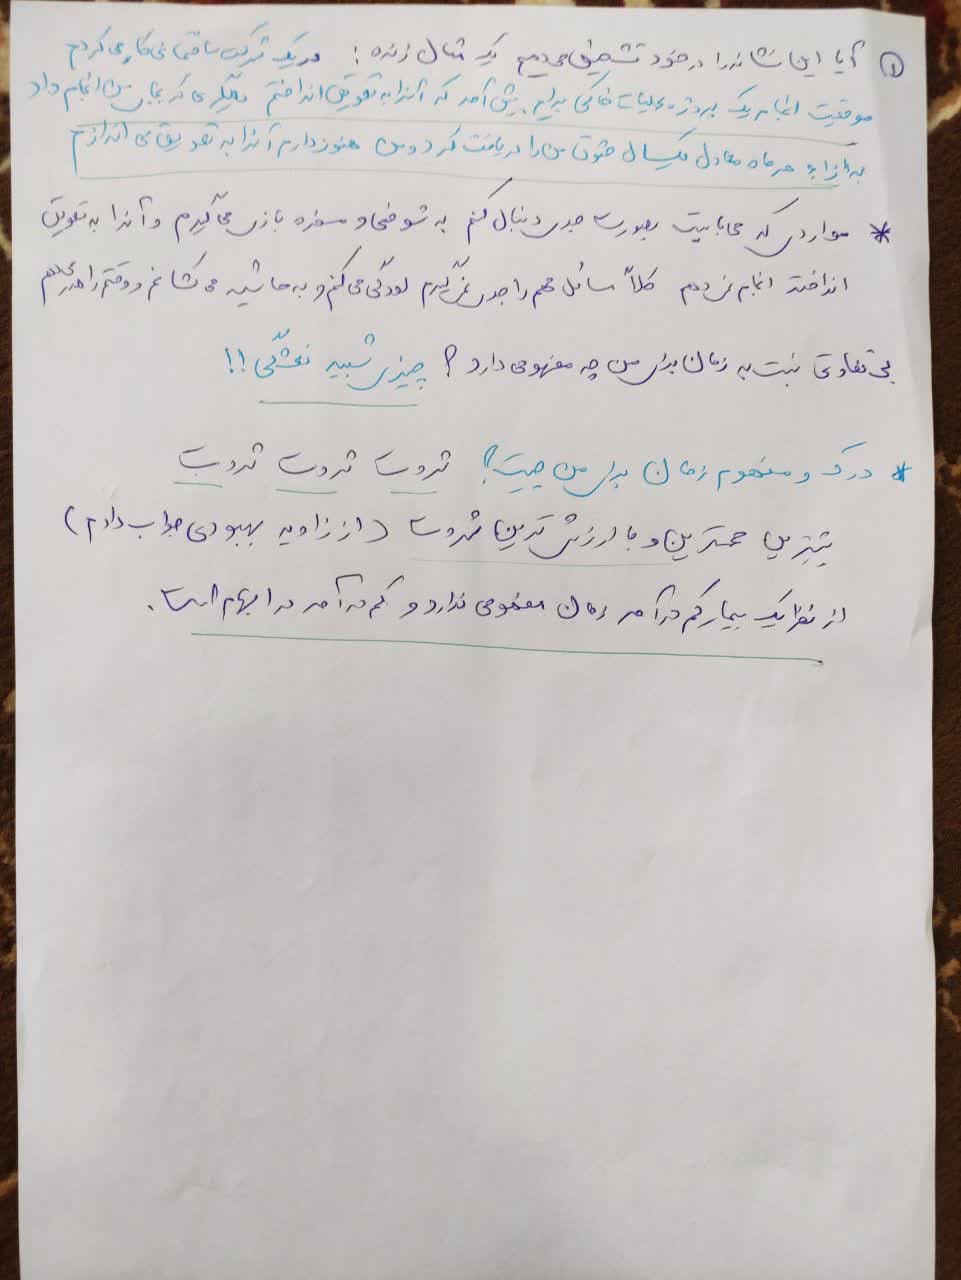 ① آیا این نشانه را در خود تشخیص می‌دهم یک مثال زنده : در یک شرکت ساختمانی کار می‌کردم
موقعیت انجام یک پروژه عملیات خاکی برایم پیش آمد که آنرا به تعویق انداختم دیگری که بجای من انجام داد
به ازاء هر ماه معادل یکسال حقوق من را دریافت کرد و من هنوز دارم آنرا به تعویق می اندازم
* مواردی که می بایست بصورت جدی دنبال کنم به شوخی و مسخره بازی می‌گیرم و آنرا به تعویق
انداخته انجام نمی‌دهم کلاً مسائل مهم را جدی نمی‌گیرم لودگی می کنم و به حاشیه می کشانم و وقتم را هدر می‌دهم
بی تفاوتی نسبت به زمان برای من چه مفهومی دارد ؟ چیزی شبیه نعشگی !!
* درک و مفهوم زمان برای من چیست؟ ثروت ثروت ثروت
مهمترین و با ارزش ترین ثروت (از زاویه بهبودی جواب دادم)
از نظر یک بیمار کم درآمد زمان مفهومی ندارد و کم درآمد در ابهام است.